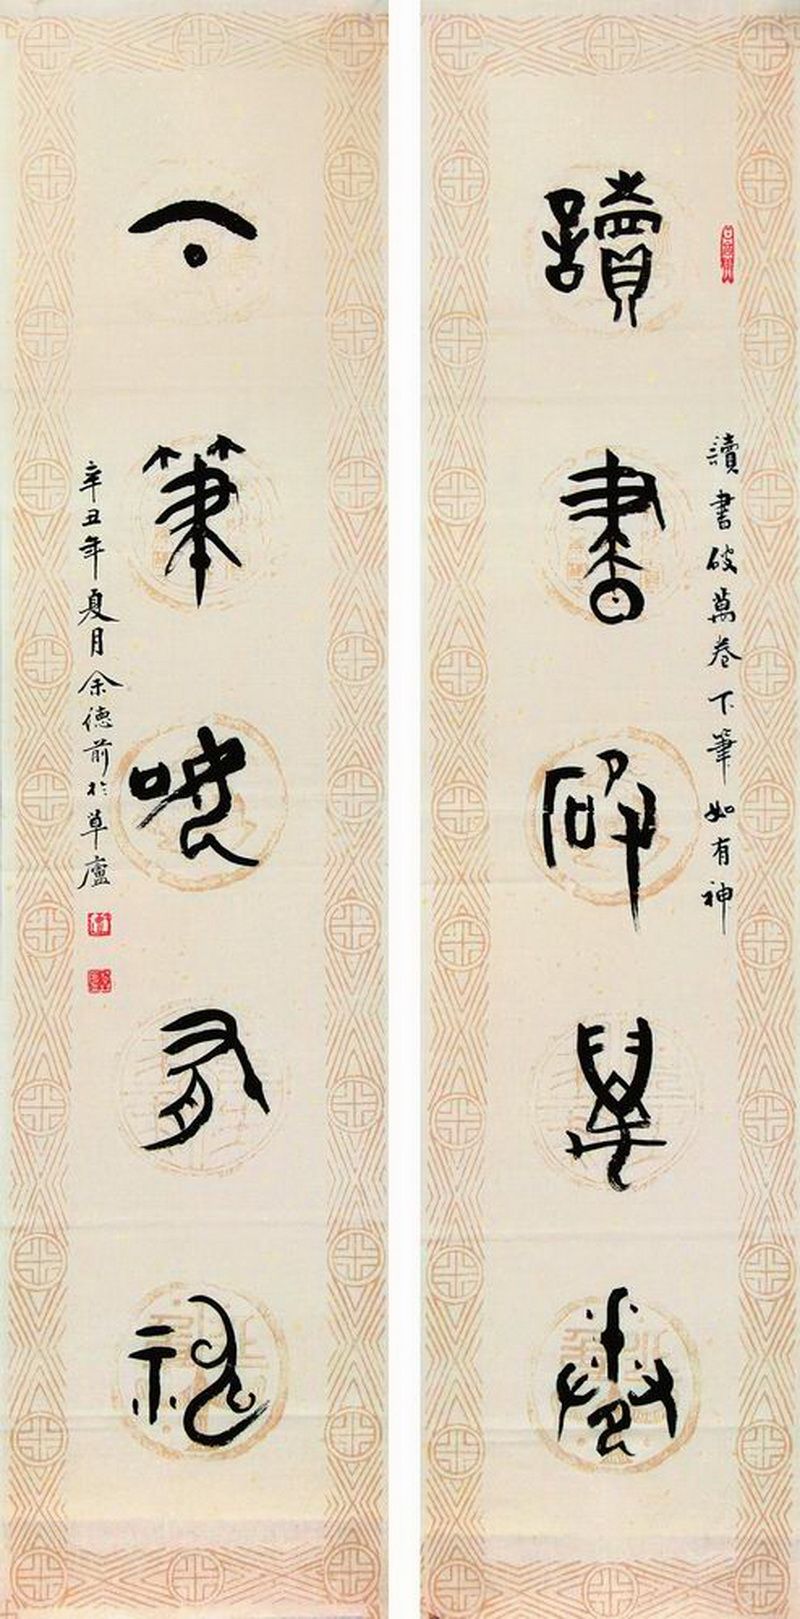 讀書破萬卷
讀書破萬卷下筆如有神
下筆如有神
辛丑年夏月余德前於草廬